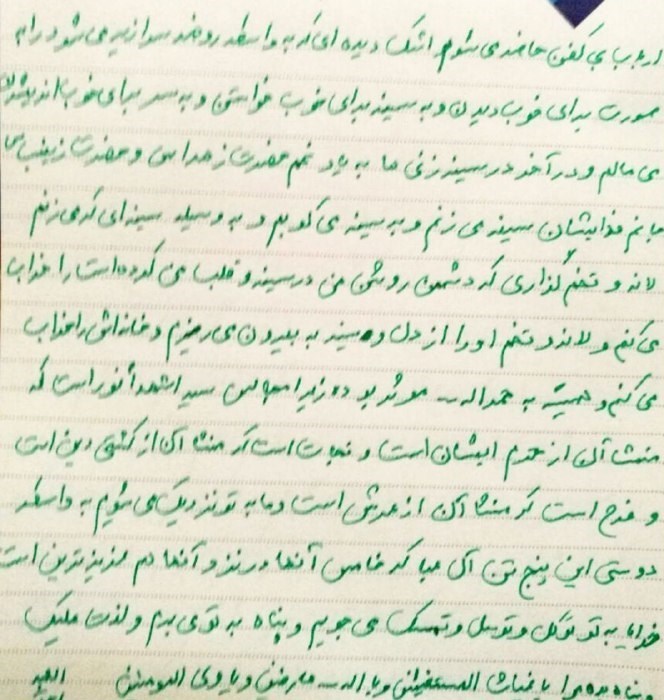 ارباب بی کفن حاضر می شوم اشک دیده ای که به واسطه روضه سرازیر می شود را به
صورت برای خوب دیدن و به سینه برای خوب خواستن و به سر برای خوب اندیشیدن
می مالم و در آخر در سینه زنی ها به یاد غم حضرت زهرا س و حضرت زینب س
جانم فدایشان سینه می زنم و به سینه می کوبم و به وسیله سینه ای که می زنم
لانه و تخم گذاری که دشمن روشن من در سینه و قلب من کرده است را خراب
می کنم و لانه و تخم او را از دل و سینه به بیرون می ریزم و خانه اش را خراب
می کنم و همیشه به حمداله موثر بوده زیرا مجالس سید الشهدا نور است که
منشا آن از حرم ایشان است و نجات است که منشا آن از کشتی دین است
و فرج است که منشا آن از عرش است و ما به تو نزدیک می شویم به واسطه
دوستی این پنج تن آل عبا که خامس آنها در نزد آنها هم عزیزترین است
خدایا به تو توکل و توسل و تمسک می جویم و پناه به تو می برم و لذت ملیک
یا غیاث المستغیثین و یا اله العارفین و یا ولی المومنین